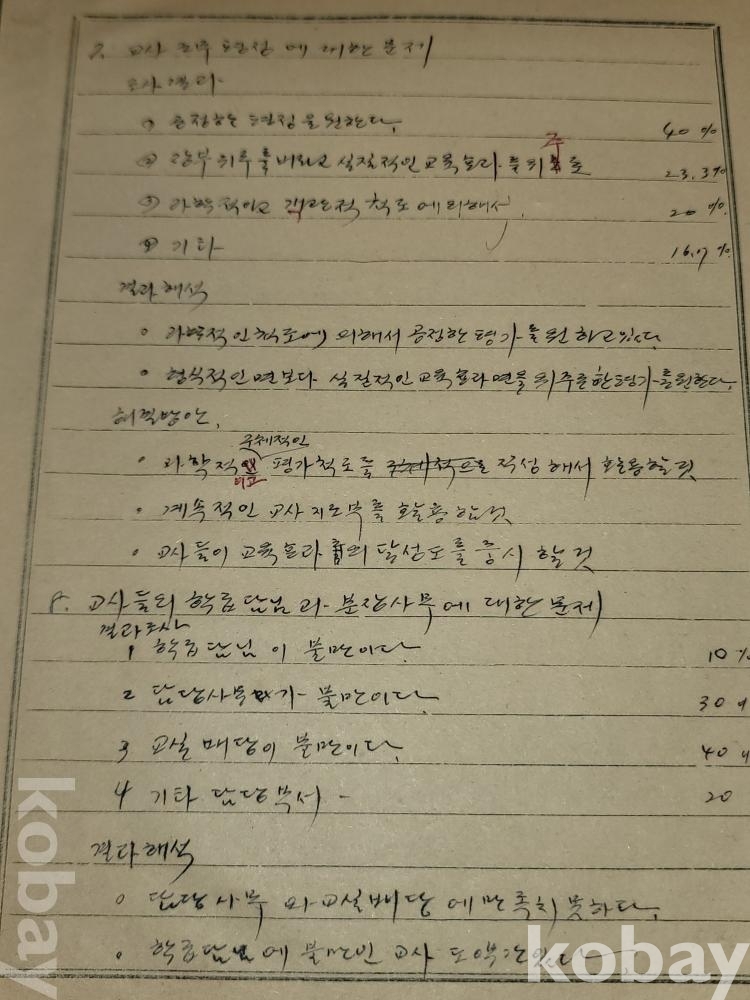 7. 교사 근무 평정에 대한 문제
조사결과
① 공정한 평정을 원한다. 40%
② 장부위주를 버리고 실질적인 교육효과를 위주로 23.3%
③ 과학적이고 객관적 척도에 의해서 20%
④ 기타 16.7%
결과해석
○ 과학적인 척도에 의해서 공정한 평가를 원하고 있다.
○ 형식적인 면보다 실질적인 교육효과면을 위주로 한 평가를 원한다.
해결방안.
구체적인
○ 과학적이고 평가척도를 작성해서 활용할 것
○ 계속적인 교사 지도부를 활용할 것
○ 교사들이 교육효과의 달성도를 중시할 것
8. 교사들의 학급담임과 분장사무에 대한 문제
결과조사
1 학급담임이 불만이다. 10%
2 담당사무가 불만이다. 30 〃
3 교실 배당이 불만이다. 40 〃
4 기타 담당부서 - 20
결과해석
○ 담당사무와 교실배당에 만족치 못하다.
○ 학급담임에 불만인 교사도 약간 있다.
kobay
kobay